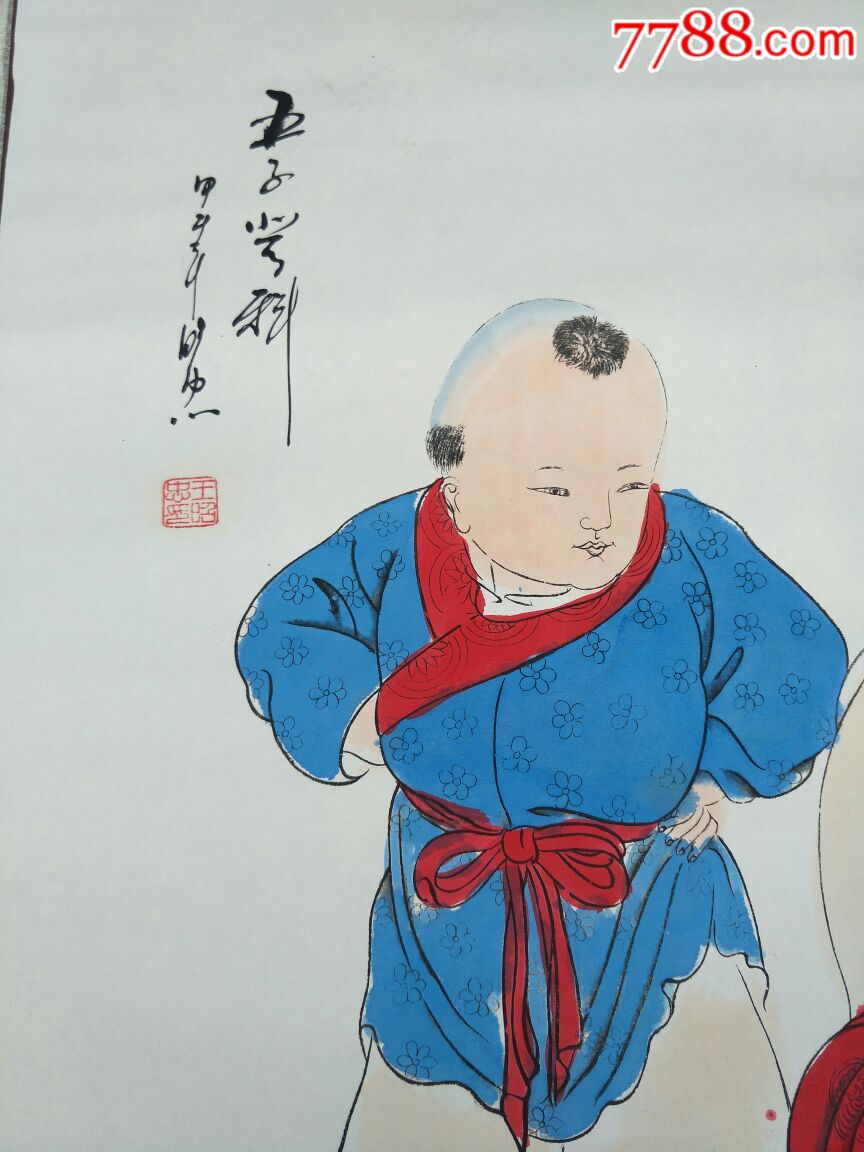 7788.com
五子登科
甲午年 昭忠
王昭忠印